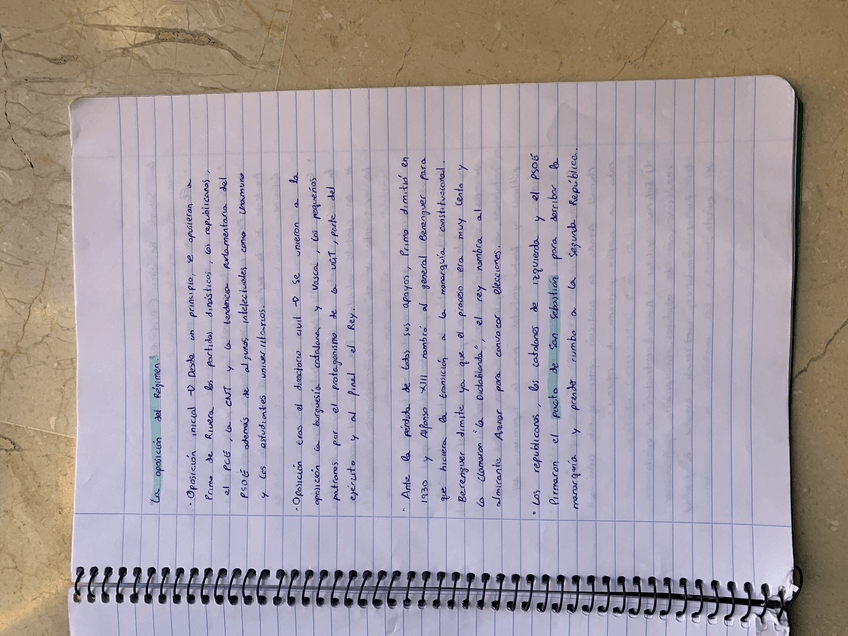 La oposición del Régimen:
· Oposición inicial → Desde un principio, se opusieron a
Primo de Rivera los partidos dinásticos, los republicanos,
el PCE, la CNT y la tendencia parlamentaria del
PSOE además de algunos intelectuales como Unamuno
y los estudiantes universitarios.
· Oposición tras el directorio civil → Se unieron a la
oposición la burguesía catalana y vasca, los pequeños
patronos por el protagonismo de la UGT, parte del
ejército y al final el Rey.
· Ante la pérdida de todos sus apoyos, Primo dimitió en
1930 y Alfonso XIII nombró al general Berenguer para
que hiciera la transición a la monarquía constitucional.
Berenguer dimite ya que el proceso era muy lento y
la llamaron "la Dictablanda", el rey nombra al
almirante Aznar para convocar elecciones.
· Los republicanos, los catalanes de izquierda y el PSOE
firmaron el pacto de San Sebastián para derribar la
monarquía y prender rumbo a la Segunda República.